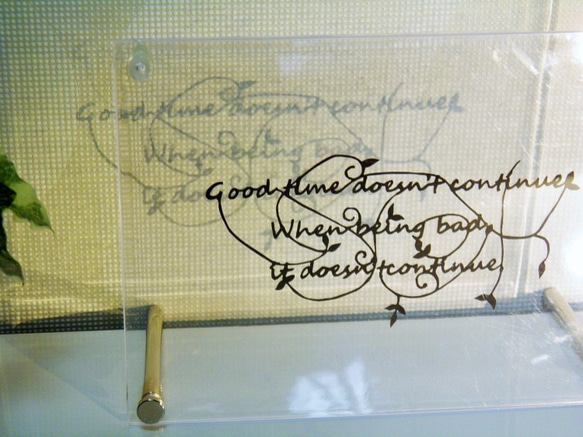 Good time doesn't continue.
When being bad,
it doesn't continue.